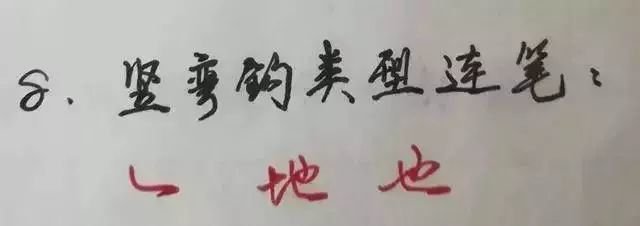 8. 竖弯钩类型连笔：
乚 地 也